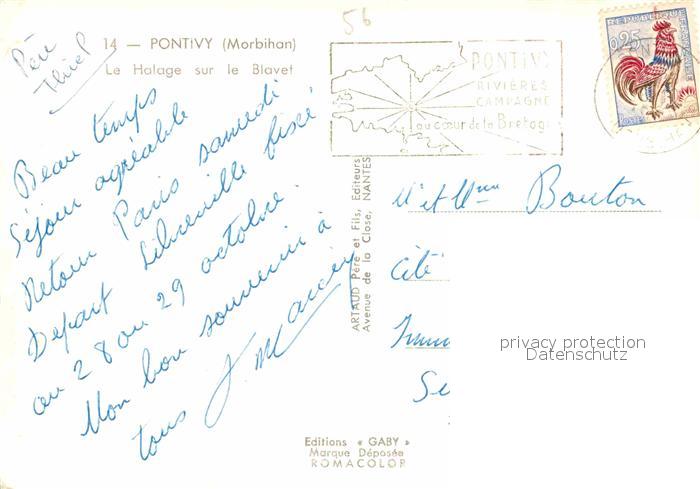 56
Père
Thiel
14 — PONTIVY (Morbihan)
Le Halage sur le Blavet
Beau temps
Séjour agréable
Retour Paris samedi
Depart Libreville fixé
au 28 ou 29 octobre.
Mon bon souvenir à
tous
PONTIVY
RIVIÈRES
CAMPAGNE
au cœur de la Bretagne
REPUBLIQUE
0,25
POSTES
ARTAUD Père et Fils, Editeurs
Avenue de la Close, NANTES
M et Mme Bouton
Cité
privacy protection
Datenschutz
Editions « GABY »
Marque Déposée
ROMACOLOR